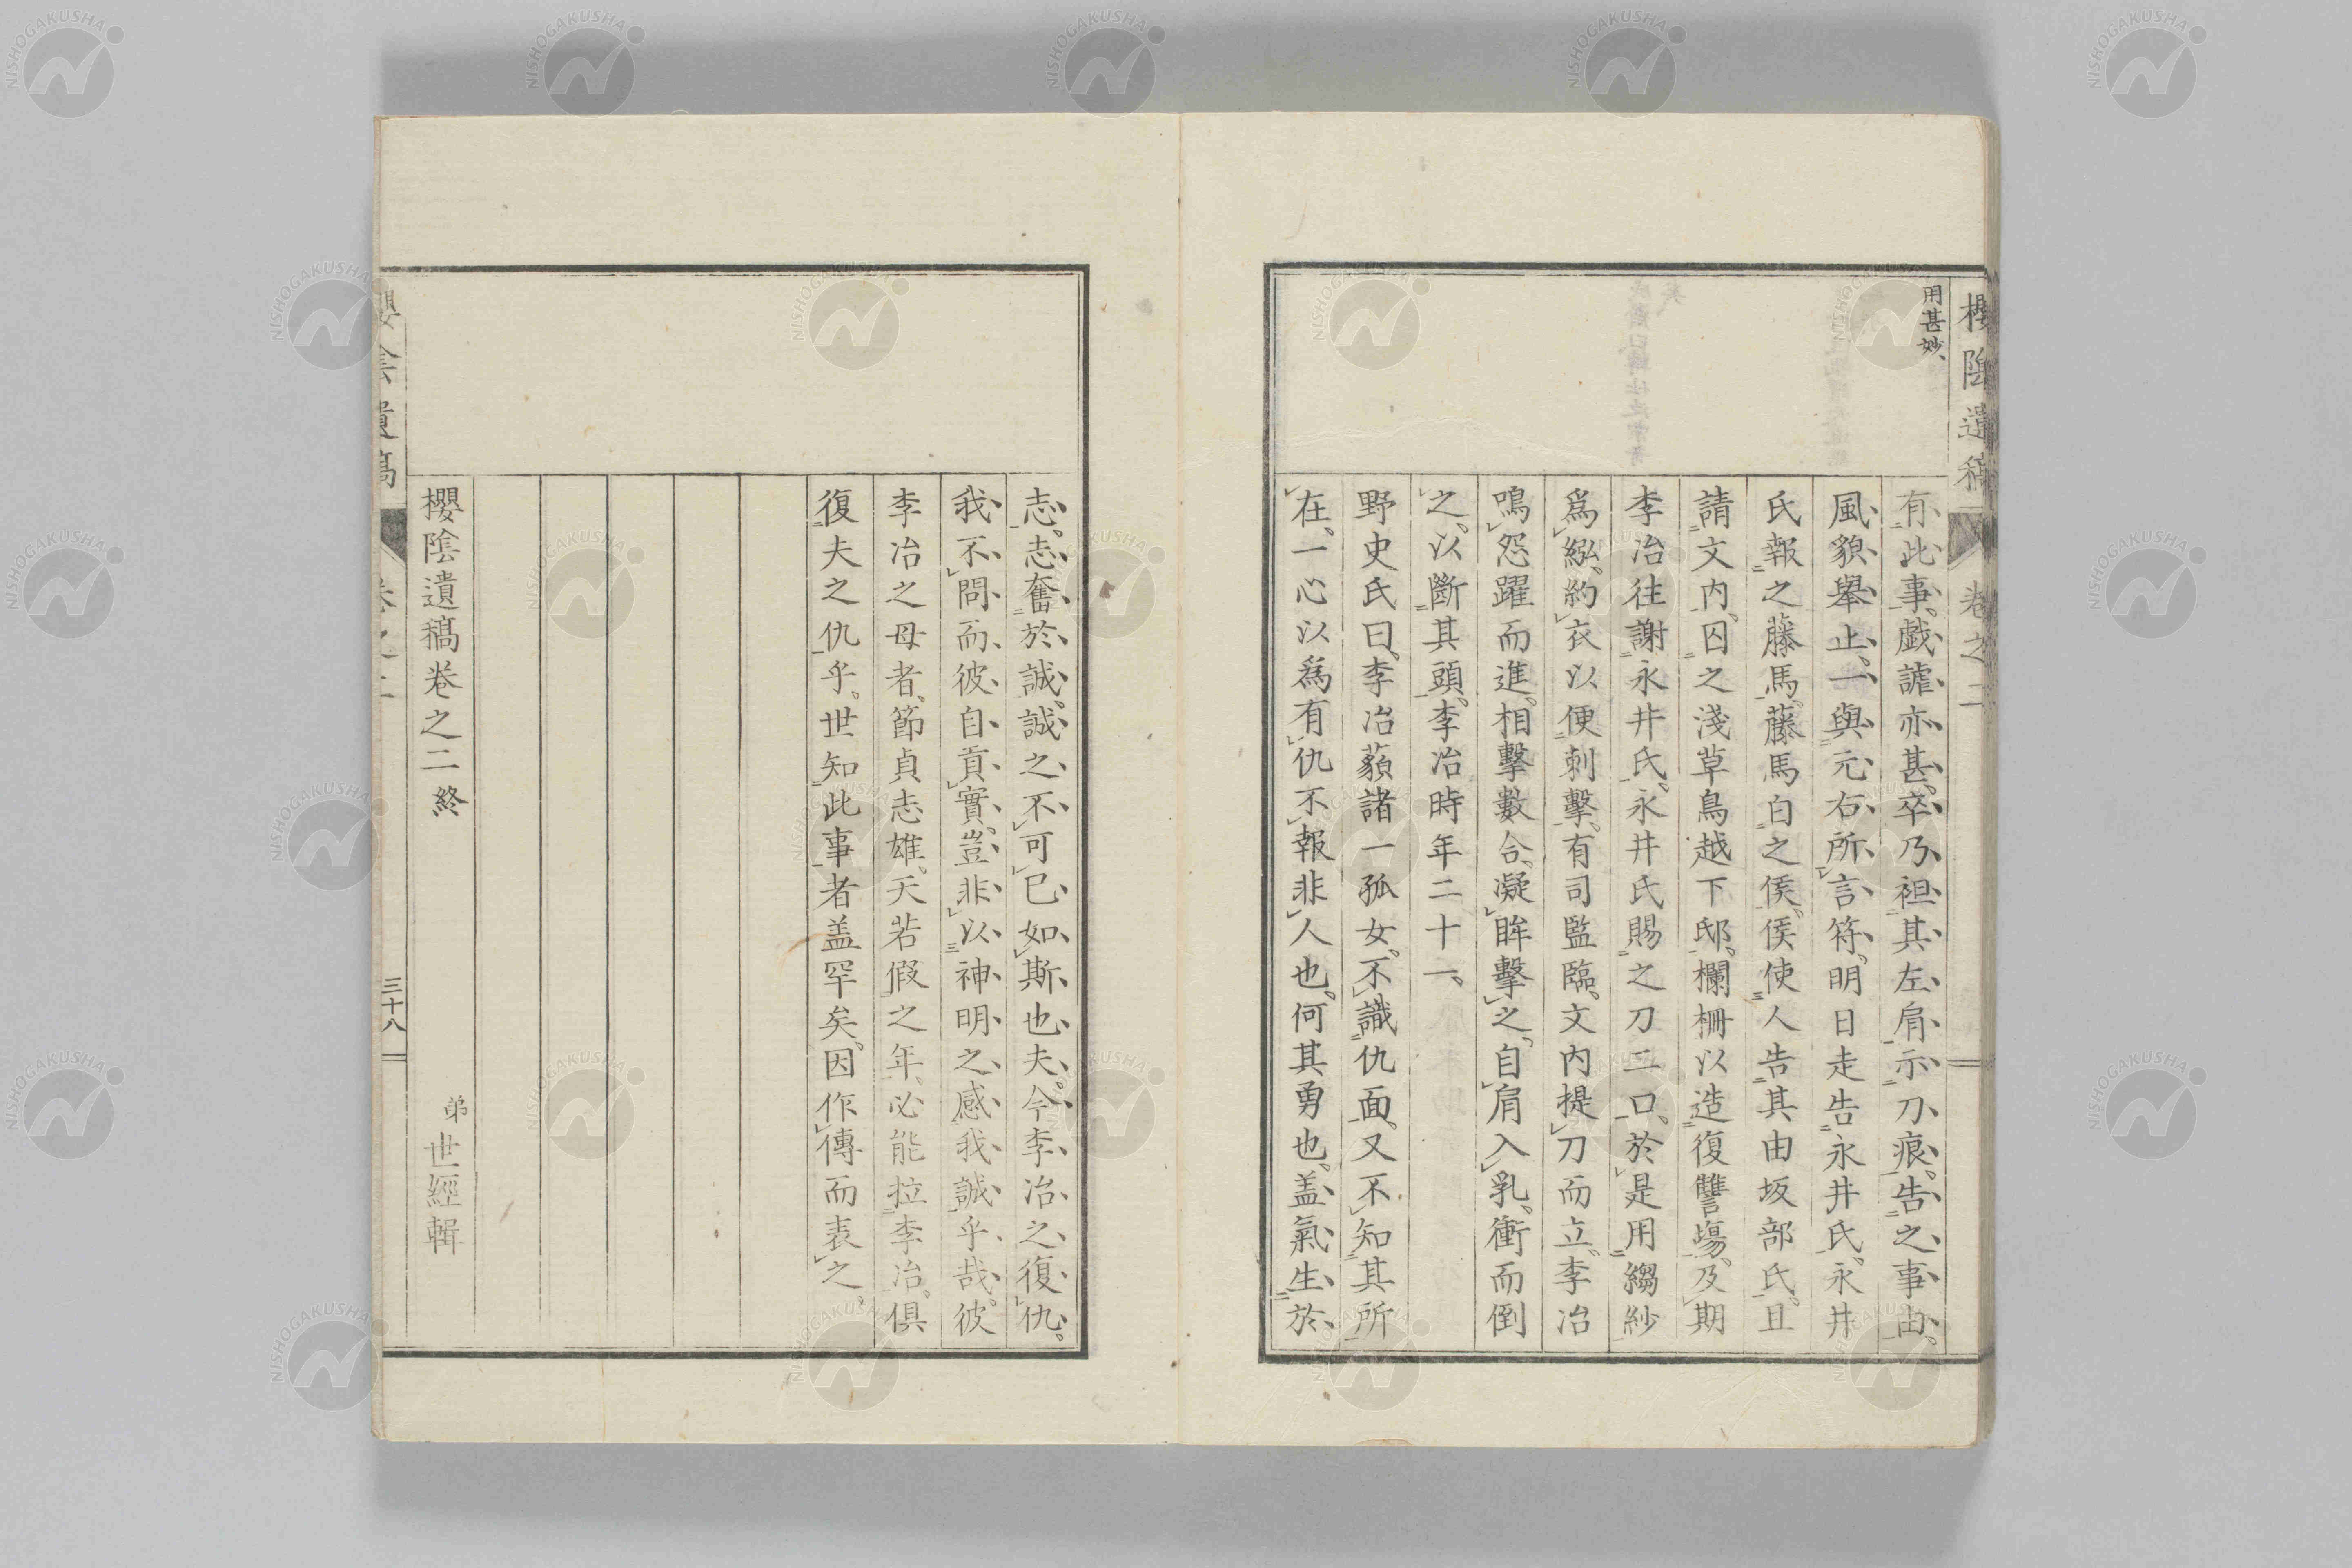 櫻陰遺稿
卷之二
用甚妙、
有此事。戯謔亦甚、卒乃袒其左肩、示刀痕。告之事由。
風貌舉止、一與元右所言符。明日走告永井氏、永井
氏報之藤馬、藤馬白之侯、侯使人告其由坂部氏。且
請文内。囚之淺草鳥越下邸。欄柵以造復讐塲、及期
李冶往謝永井氏、永井氏賜之刀二口。於是用縐紗
爲紭、約衣以便刺擊。有司監臨。文内提刀而立、李冶
鳴怨躍而進、相擊數合、凝眸擊之、自肩入乳、衝而倒
之。以斷其頭、李冶時年二十一。
野史氏曰、李冶藐諸一孤女、不識仇面、又不知其所
在。一心以爲有仇不報非人也。何其勇也、盖氣生於
志。志奮於誠、誠之不可已如斯也夫。今李冶之復仇。
我不問而彼自貢實、豈非以神明之感我誠乎哉。彼
李冶之母者、節貞志雄、天若假之年、必能拉李冶。俱
復夫之仇乎。世知此事者盖罕矣。因作傳而表之。
櫻陰遺稿卷之二終
弟 世經輯
三十八